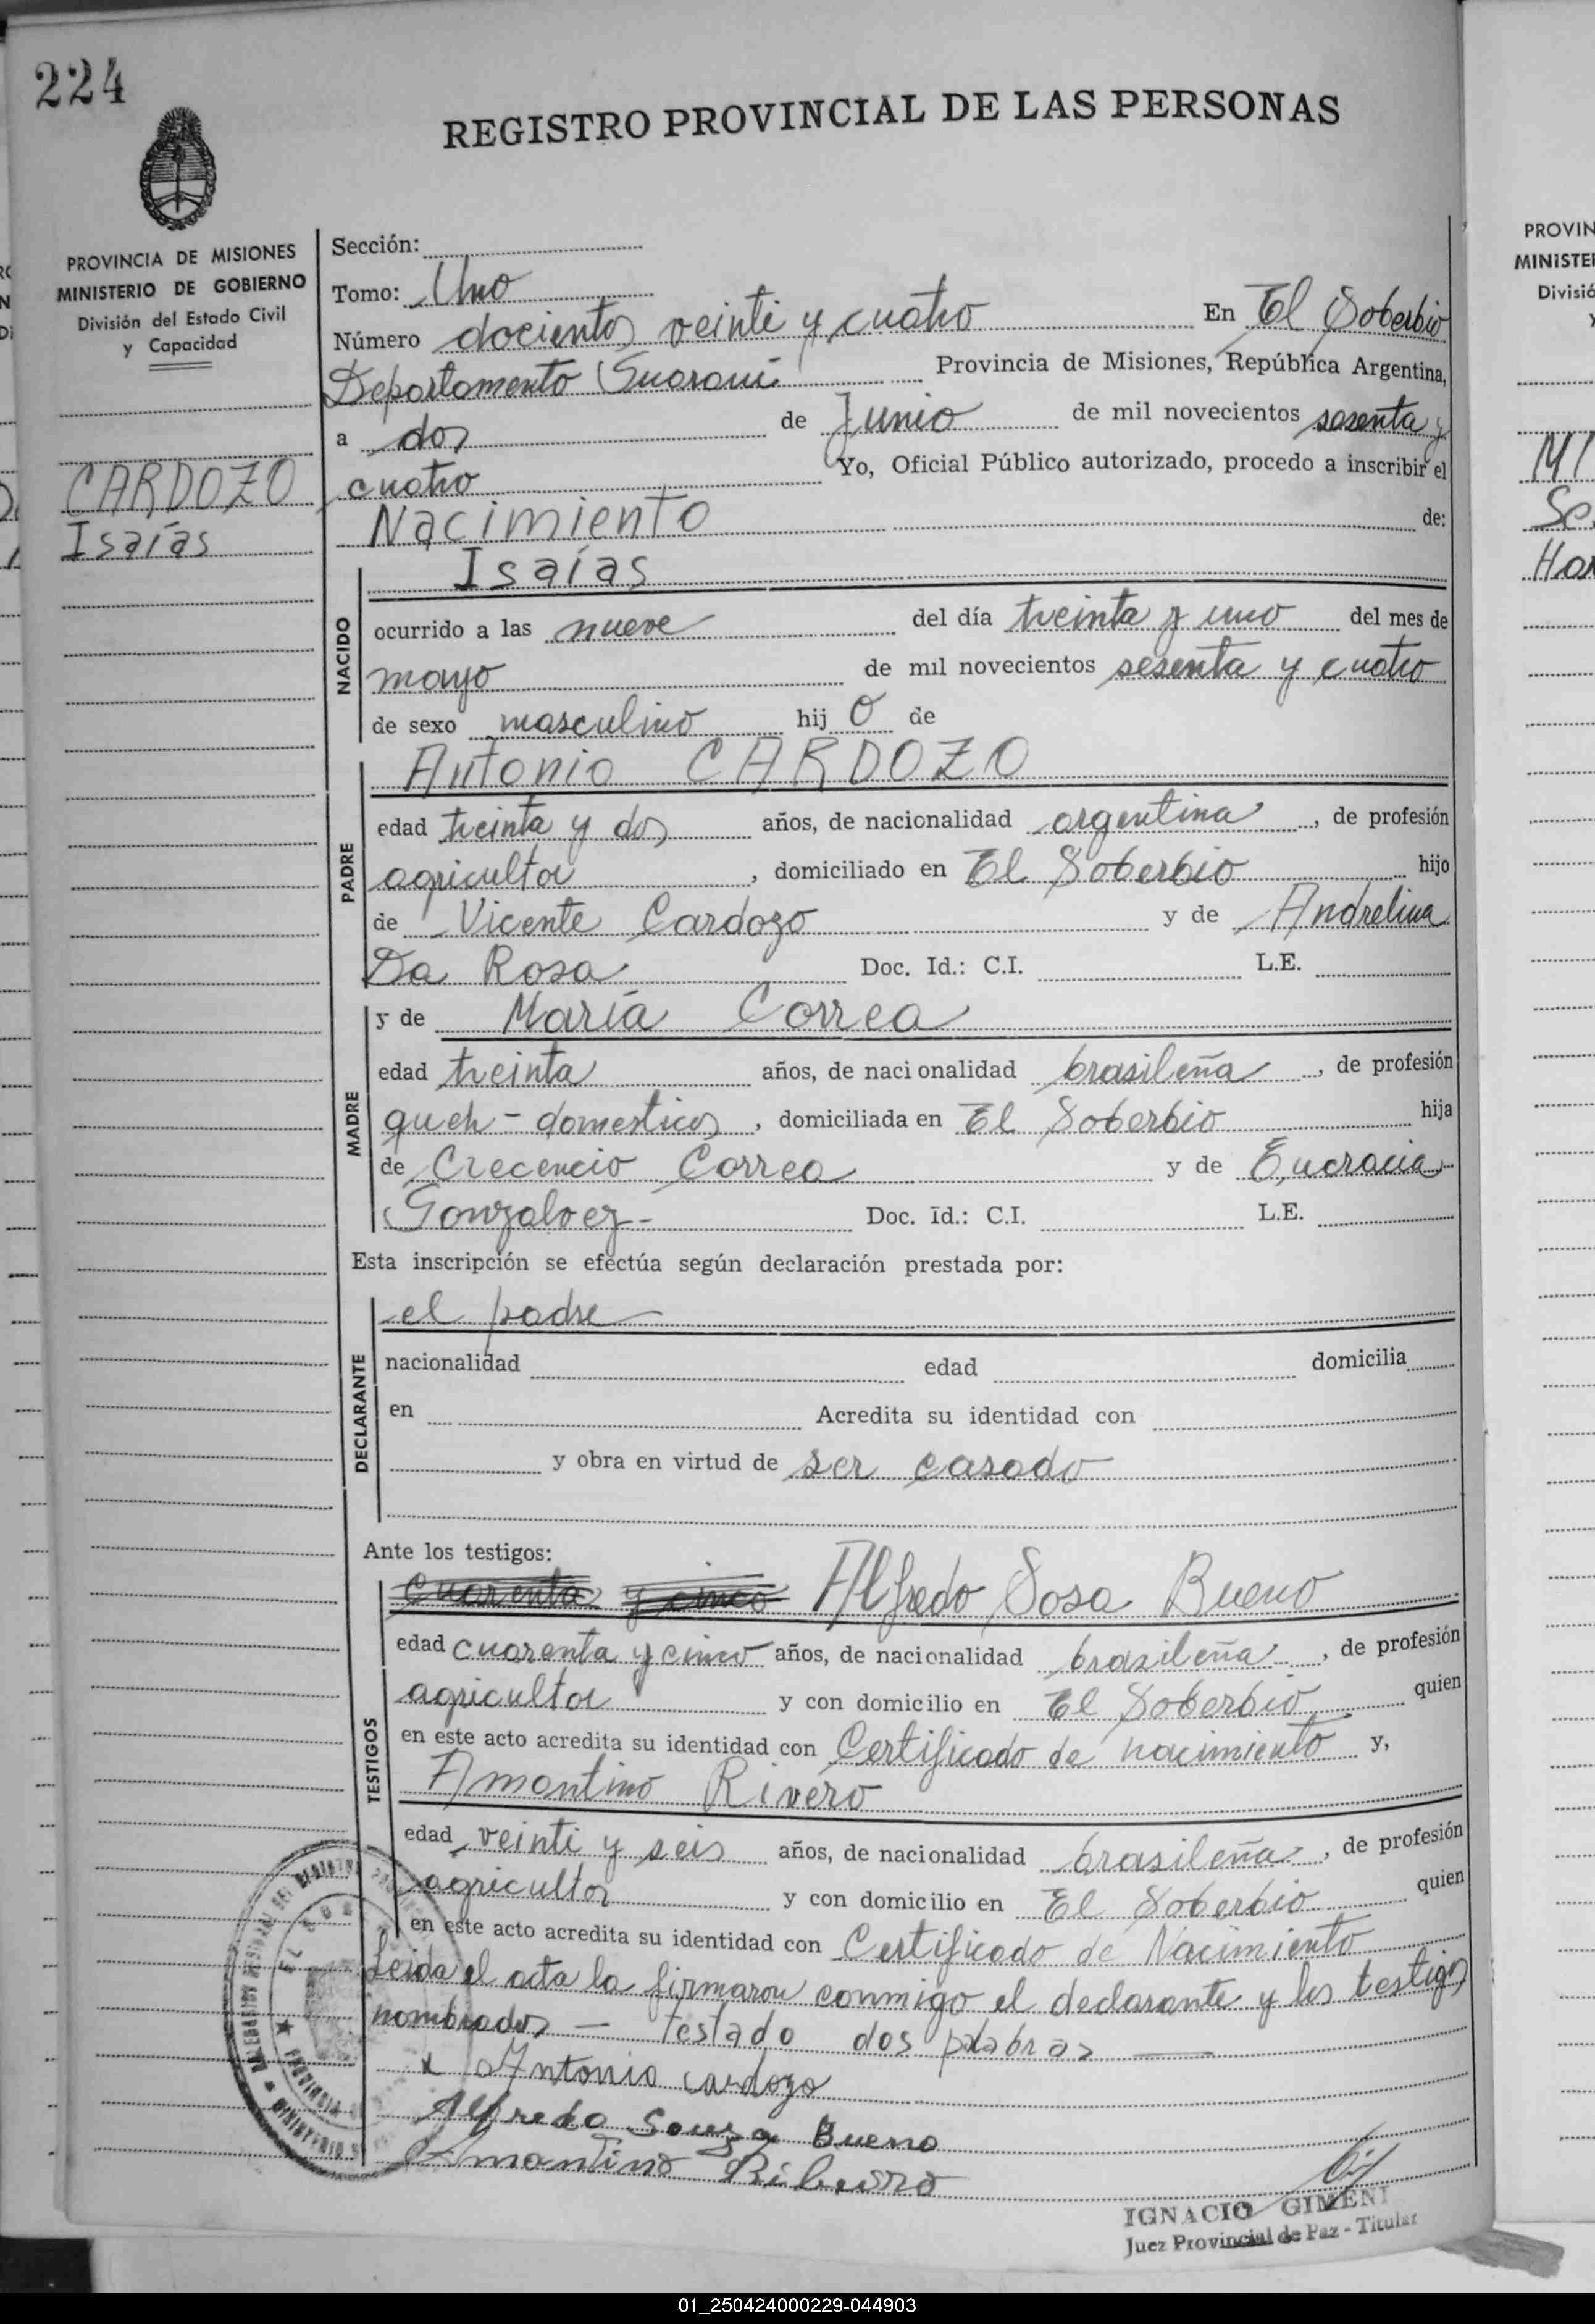 224
REGISTRO PROVINCIAL DE LAS PERSONAS
PROVINCIA DE MISIONES
MINISTERIO DE GOBIERNO
División del Estado Civil
y Capacidad
CARDOZO
Isaías
Sección:
Tomo: Uno
Número docientos veinti y cuatro En El Soberbio
Departamento Guaraní Provincia de Misiones, República Argentina,
a dos de Junio de mil novecientos sesenta y
cuatro Yo, Oficial Público autorizado, procedo a inscribir el
Nacimiento de:
NACIDO
Isaías
ocurrido a las nueve del día treinta y uno del mes de
mayo de mil novecientos sesenta y cuatro
de sexo masculino hij o de
PADRE
Antonio CARDOZO
edad treinta y dos años, de nacionalidad argentina, de profesión
agricultor, domiciliado en El Soberbio hijo
de Vicente Cardozo y de Andrelina
Da Rosa Doc. Id.: C.I. L.E.
MADRE
y de María Correa
edad treinta años, de naci onalidad brasileña, de profesión
queh-domesticos, domiciliada en El Soberbio hija
de Crecencio Correa y de
Gonzalvez- Doc. Id.: C.I. L.E.
Esta inscripción se efectúa según declaración prestada por:
DECLARANTE
el padre
nacionalidad edad domicilia
en Acredita su identidad con
y obra en virtud de ser casado
Ante los testigos:
TESTIGOS
cuarenta y cinco Alfredo Sosa Bueno
edad cuarenta y cinco años, de nacionalidad brasileña, de profesión
agricultor y con domicilio en El Soberbio quien
en este acto acredita su identidad con Certificado de nacimiento y,
Amantino Rivero
edad veinti y seis años, de nacionalidad brasileña, de profesión
agricultor y con domicilio en El Soberbio quien
en este acto acredita su identidad con Certificado de Nacimiento
Leida el acta la firmaron conmigo el declarante y los testigos
nombrados — Testado dos palabras —
x Antonio Cardozo
Alfredo Souza Bueno
Amantino Ribeiro
IGNACIO GIMEN
Juez Provincial de Paz - Titular
PROVIN
MINISTE
Divisió
01_250424000229-044903